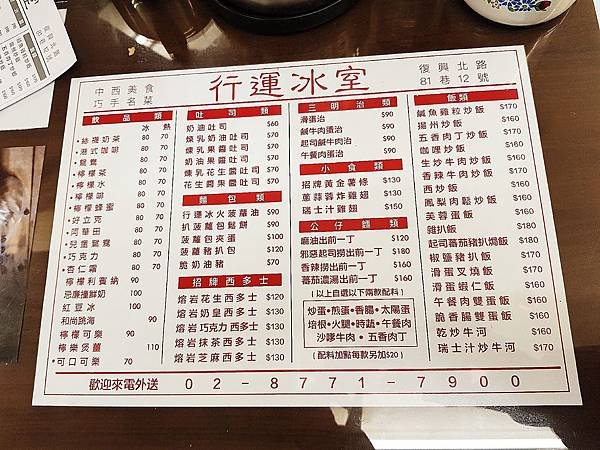 中西美食
巧手名菜
行運冰室
復興北路
81巷12號
飲品類
冰 熱
•絲襪奶茶 80 70
•港式咖啡 80 70
•鴛鴦 80 70
•檸檬茶 80 70
•檸檬水 80 70
•檸檬啡 80 70
•檸檬蜂蜜 80 70
•好立克 80 70
•阿華田 80 70
•兒童鴛鴦 80 70
•巧克力 80 70
•杏仁霜 80 70
檸檬利賓納 90
忌廉撞鮮奶 100
紅豆冰 100
和尚跳海 90
檸檬可樂 90
檸樂煲薑 110
•可口可樂 70
吐司類
奶油吐司 $60
煉乳奶油吐司 $70
煉乳果醬吐司 $70
奶油果醬吐司 $70
煉乳花生醬吐司 $70
花生醬果醬吐司 $70
麵包類
行運冰火菠蘿油 $90
扒菠蘿包鬆餅 $90
菠蘿包夾蛋 $100
菠蘿豬扒包 $120
脆奶油豬 $70
招牌西多士
熔岩花生西多士 $130
熔岩奶皇西多士 $130
熔岩巧克力西多士 $130
熔岩抹茶西多士 $130
熔岩芝麻西多士 $130
三明治類
滑蛋治 $90
鹹牛肉蛋治 $90
起司鹹牛肉治 $90
午餐肉蛋治 $90
小食類
招牌黃金薯條 $130
蔥蒜蓉炸雞翅 $130
瑞士汁雞翅 $150
公仔麵類
麻油出前一丁 $120
邪惡起司撈出前一丁 $180
香辣撈出前一丁 $160
蕃茄濃湯出前一丁 $160
(以上自選以下兩款配料)
炒蛋•煎蛋•香腸•太陽蛋
培根•火腿•時蔬•午餐肉
沙嗲牛肉•五香肉丁
(配料加點每款另加$20)
飯類
鹹魚雞粒炒飯 $170
揚州炒飯 $160
五香肉丁炒飯 $170
咖哩炒飯 $160
生炒牛肉炒飯 $160
香辣牛肉炒飯 $170
西炒飯 $160
鳳梨肉鬆炒飯 $160
芙蓉蛋飯 $180
雜扒飯 $180
起司蕃茄豬扒焗飯 $180
椒鹽豬扒飯 $170
滑蛋叉燒飯 $160
滑蛋蝦仁飯 $160
午餐肉雙蛋飯 $160
脆香腸雙蛋飯 $160
乾炒牛河 $160
瑞士汁炒牛河 $160
歡迎來電外送 02-8771-7900